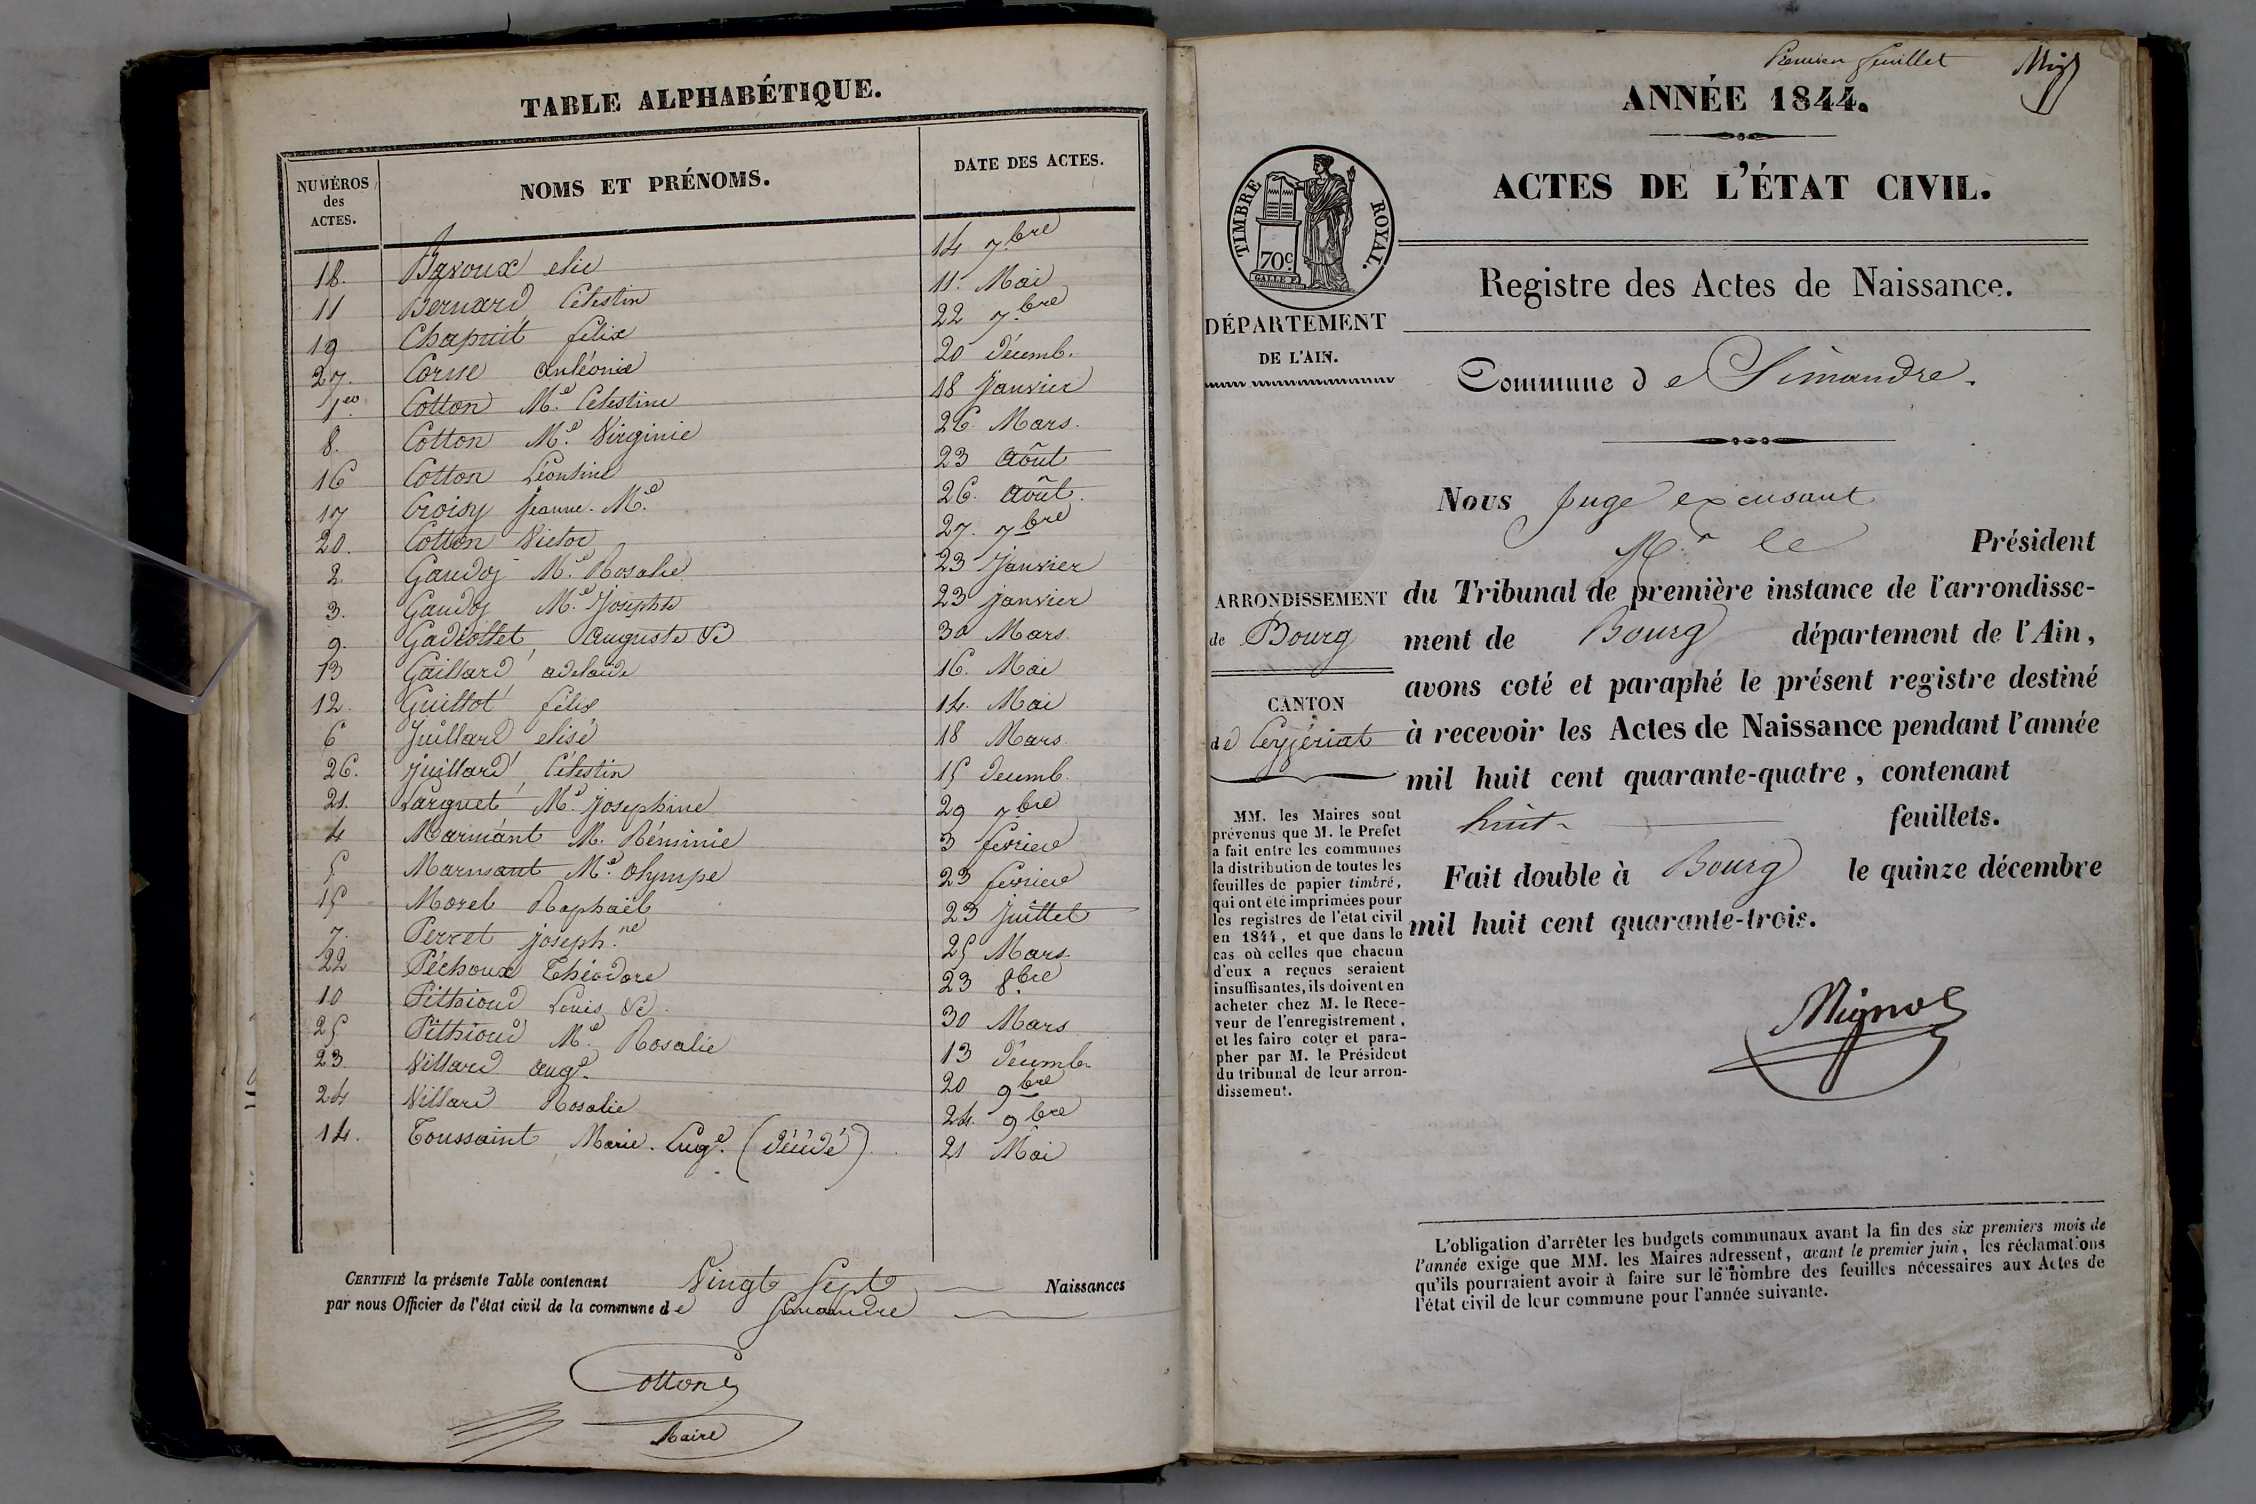 TABLE ALPHABÉTIQUE.
NUMÉROS des ACTES. NOMS ET PRÉNOMS. DATE DES ACTES.
18. Bavoux elie 14 7.bre
11 Bernard Célestin 11. Mai
19 Chapuit félix 22 7.bre
27. Corne antéonie 20 décemb.
1er Cotton M.e Celestine 18 Janvier
8. Cotton M.e Virginie 26. Mars.
16 Cotton Léontine 23 Août
17 Croisy Jeanne. M.e 26. Août.
20. Cotton Victor 27. 7bre
2. Gaudoj M.e Rosalie 23 Janvier
3. Gaudoj M.e Josephte 23 janvier
9. Gadiollet, auguste &c 30 Mars.
13 Gaillard adelaide 16. Mai
12. Guillot félix 14. Mai
6 Juillard elisé 18 Mars.
26. Juillard Célestin 15 décemb.
21. Larguet M.e josephine 29 7bre
4 Marmant M. Rénsinie 3 fevrier
5 Marmant M.e Olympe 23 fevrier
15 Morel Raphaël 23 Juillet
7. Perret joseph.ne 25 Mars.
22 Péchoux Théodore 23 8.bre
10 Pithioud Louis &c. 30 Mars
25 Pithioud M.e Rosalie 13 décemb.
23. Villard aug.e 20 9bre
24 Villard Rosalie 24. 9bre
14. Toussaint Marie. Eug.e (décédé) 21 Mai
CERTIFIÉ la présente Table contenant Vingt Sept Naissances
par nous Officier de l'état civil de la commune de Simandre
Cotton
Maire
Premier feuillet Mig
ANNÉE 1844.
ACTES DE L'ÉTAT CIVIL.
TIMBRE ROYAL.
70c.
GALLE F.
Registre des Actes de Naissance.
DÉPARTEMENT
DE L'AIN.
Commune de Simandre.
Nous Juge excusant
Mr le Président
du Tribunal de première instance de l'arrondisse-
ment de Bourg département de l'Ain,
avons coté et paraphé le présent registre destiné
à recevoir les Actes de Naissance pendant l'année
mil huit cent quarante-quatre, contenant
huit feuillets.
Fait double à Bourg le quinze décembre
mil huit cent quarante-trois.
Mignot
ARRONDISSEMENT
de Bourg
CANTON
de Ceyzériat
MM. les Maires sont
prévenus que M. le Préfet
a fait entre les communes
la distribution de toutes les
feuilles de papier timbré,
qui ont été imprimées pour
les registres de l'état civil
en 1844, et que dans le
cas où celles que chacun
d'eux a reçues seraient
insuffisantes, ils doivent en
acheter chez M. le Rece-
veur de l'enregistrement,
et les faire coter et para-
pher par M. le Président
du tribunal de leur arron-
dissement.
L'obligation d'arrêter les budgets communaux avant la fin des six premiers mois de
l'année exige que MM. les Maires adressent, avant le premier juin, les réclamations
qu'ils pourraient avoir à faire sur le nombre des feuilles nécessaires aux Actes de
l'état civil de leur commune pour l'année suivante.